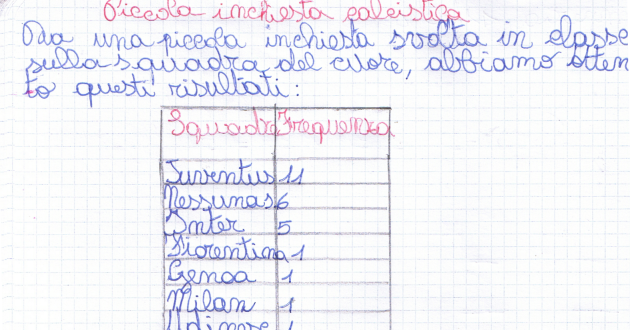 Piccola inchiesta calcistica
Da una piccola inchiesta svolta in classe
sulla squadra del cuore, abbiamo otten
to questi risultati:
Squadra Frequenza
Juventus 11
Nessuna 6
Inter 5
Fiorentina 1
Genoa 1
Milan 1
Udinese 1